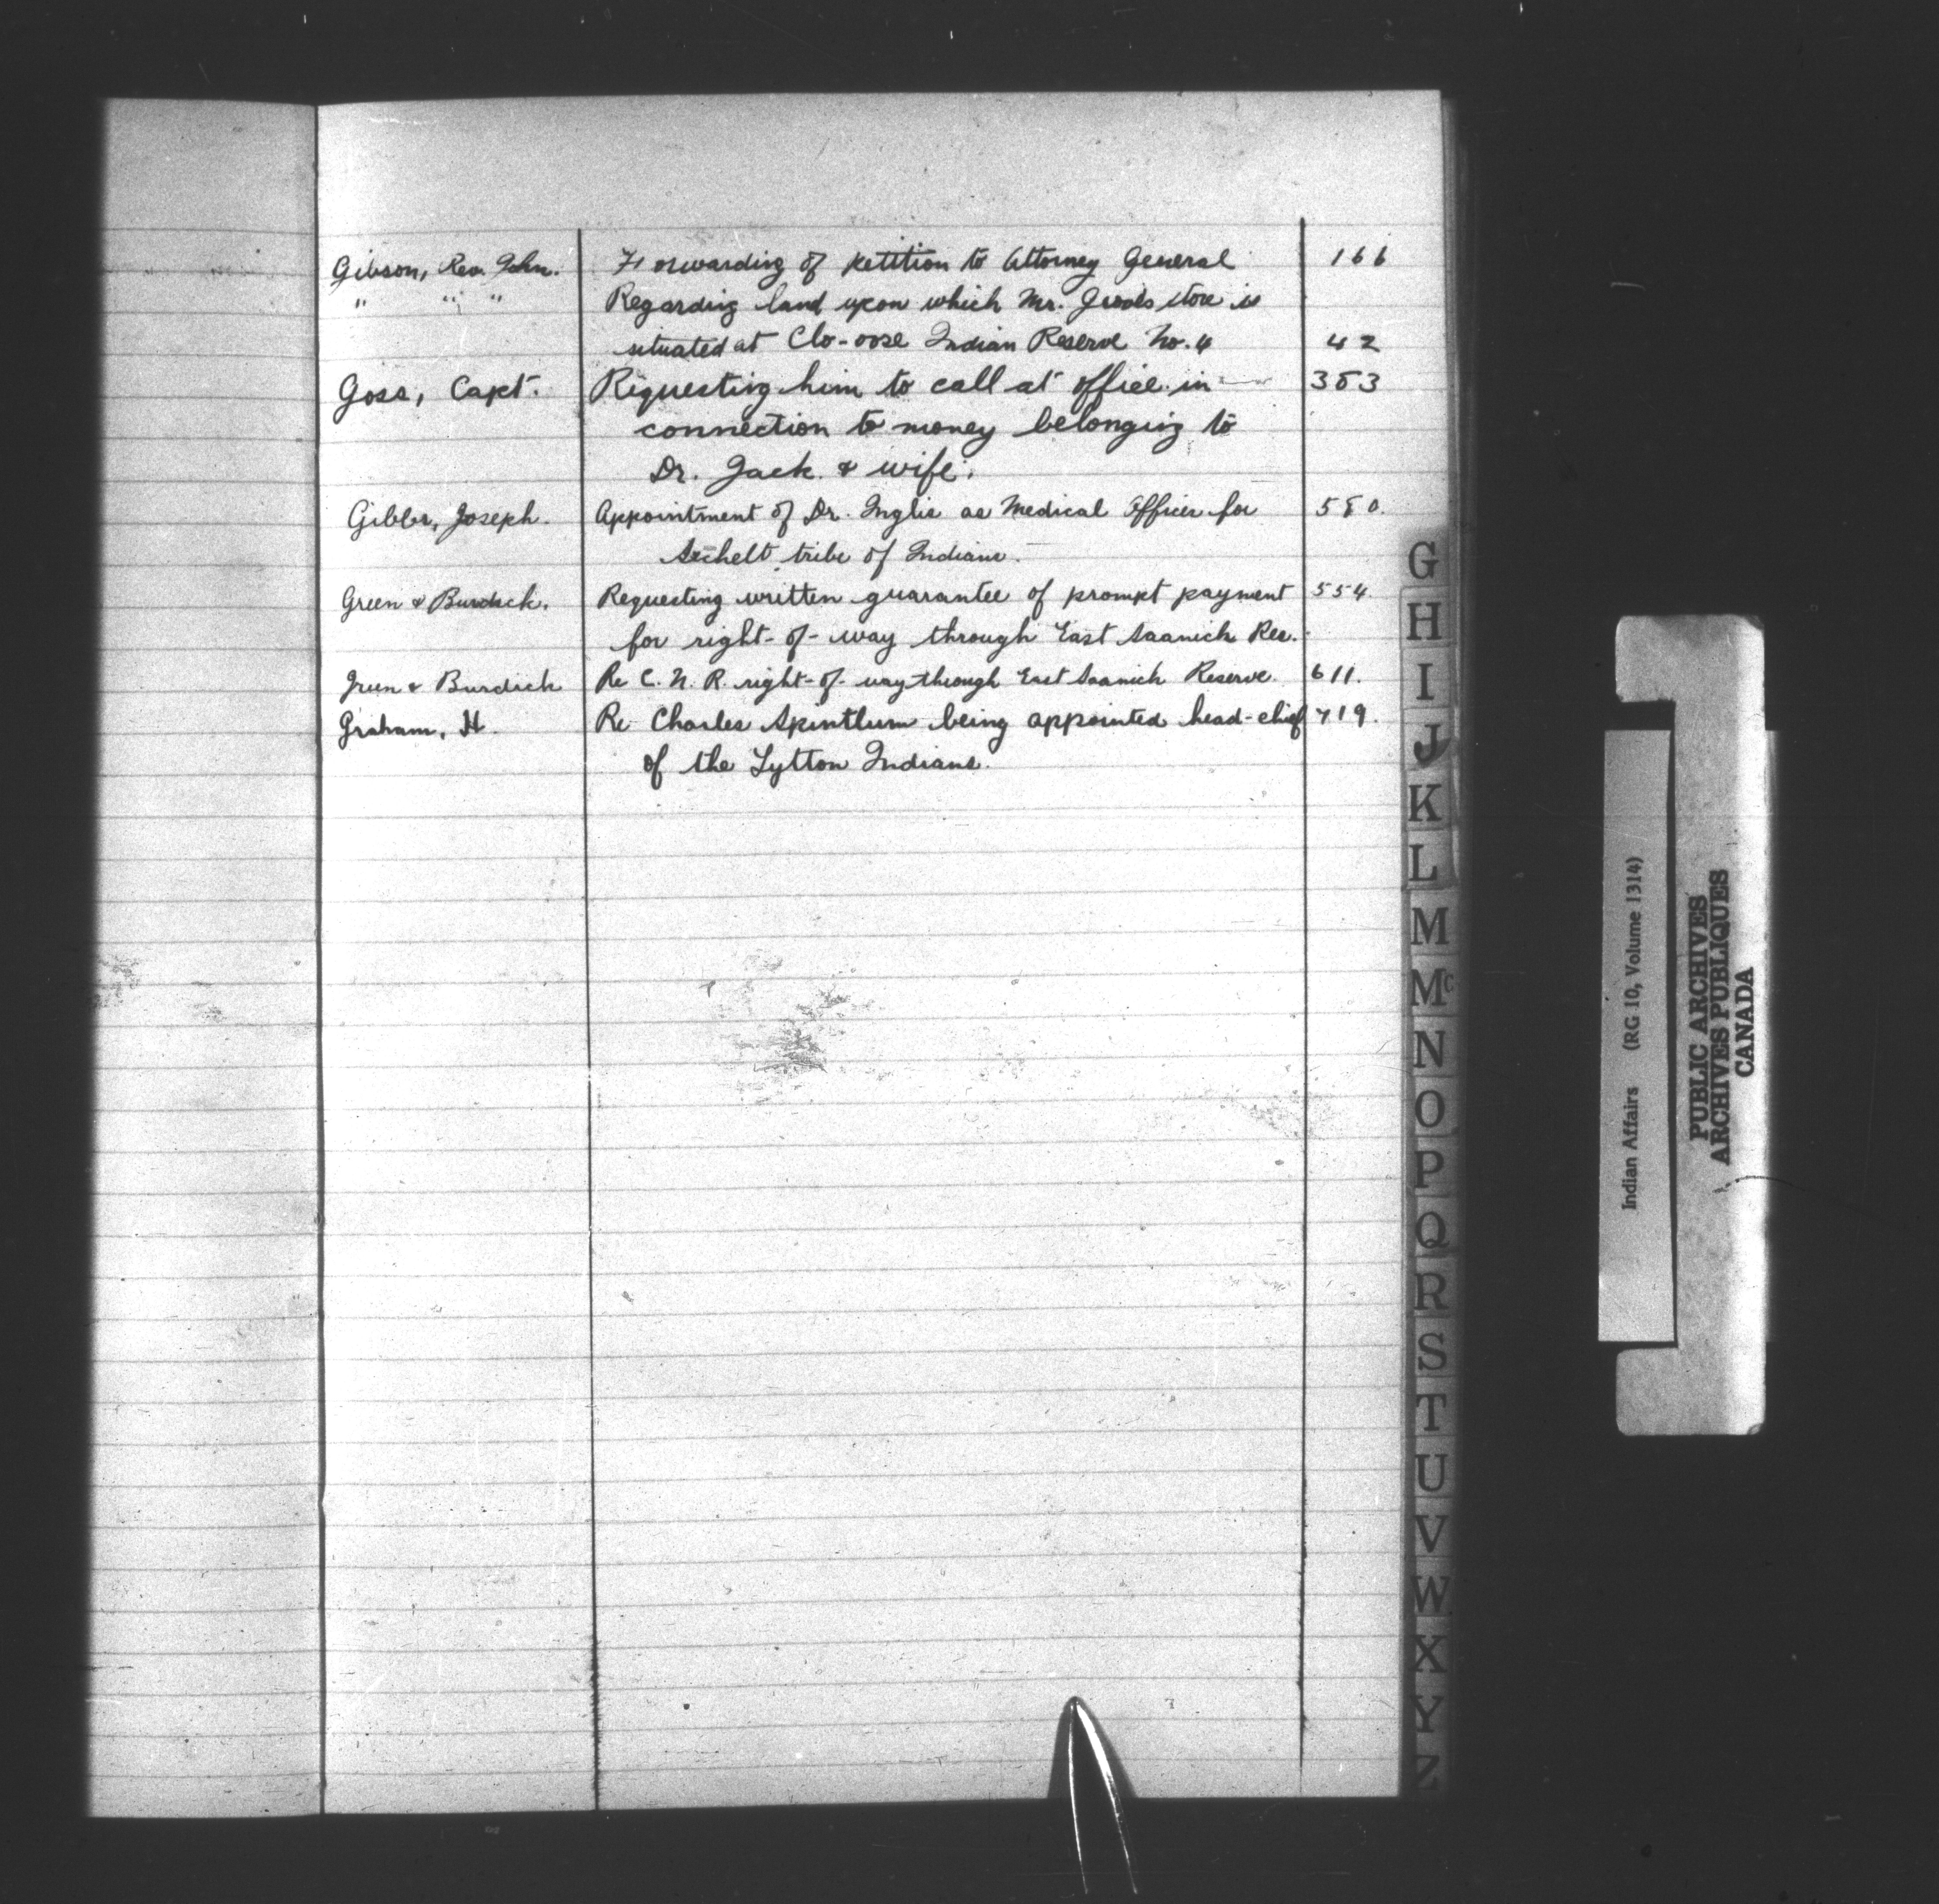 Gibson, Rev. John. Forwarding of petition to Attorney General 166
" " " Regarding land upon which Mr. store is
situated at Clo-oose Indian Reserve No. 4 42
Goss, Capt. Requesting him to call at office in 383
connection to money belonging to
Dr. Jack & wife.
Gibbs, Joseph. Appointment of Dr. Inglis as Medical Officer for 580.
Sechelt tribe of Indians.
Green & Burdick. Requesting written guarantee of prompt payment 554.
for right-of-way through East Saanich Res.
Green & Burdick Re C. N. R. right-of-way through East Saanich Reserve. 611.
Graham, H. Re Charles Spintlum being appointed head-chief 719.
of the Lytton Indians.
G
H
I
J
K
L
M
Mc
N
O
P
Q
R
S
T
U
V
W
X
Y
Z
Indian Affairs (RG 10, Volume 1314)
PUBLIC ARCHIVES
ARCHIVES PUBLIQUES
CANADA